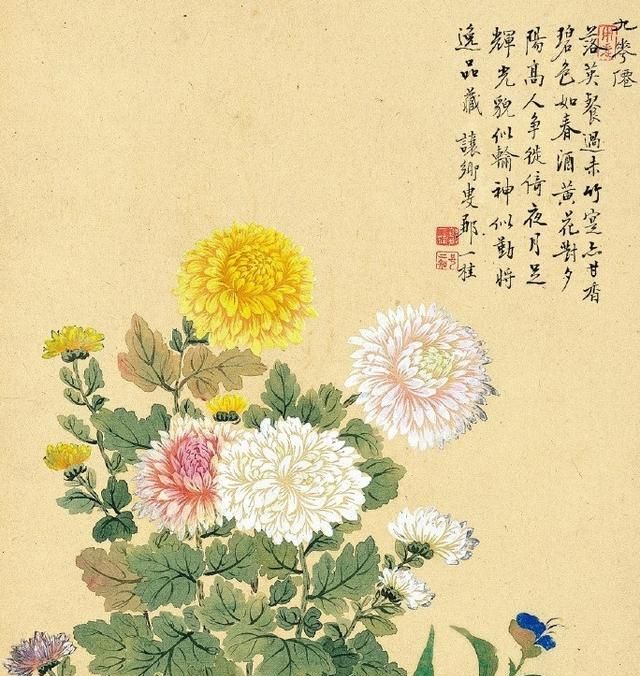 九華僊
落英餐過未竹窓亦甘香
碧色如春酒黃花對夕
陽高人爭徙倚夜月足
輝光貌似輪神似勤將
逸品藏 讓卿叟鄒一桂